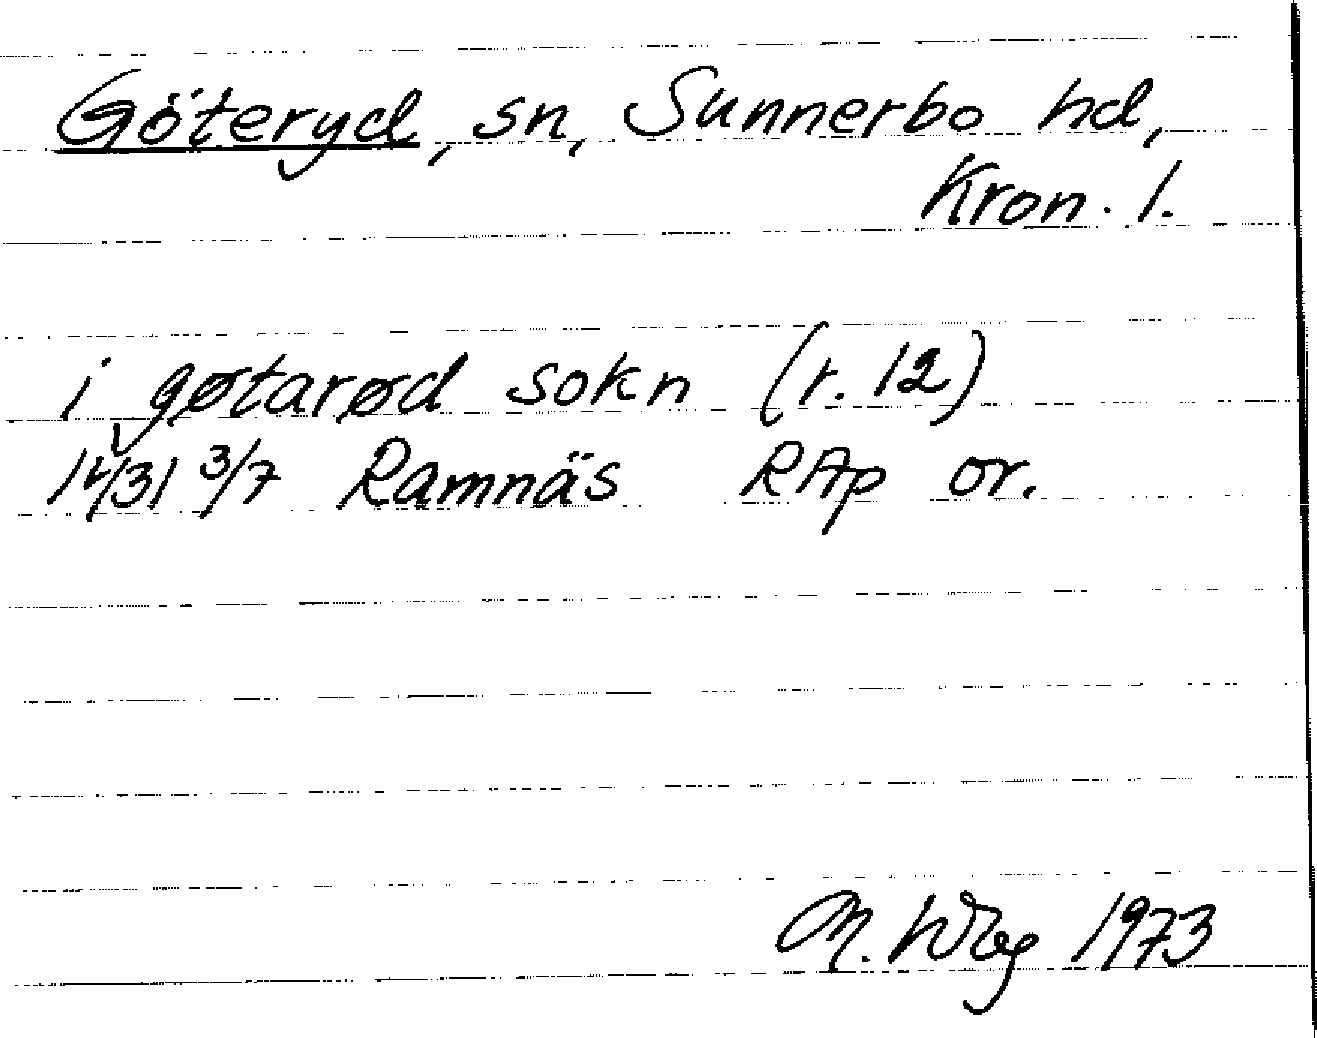 Göteryd, sn, Sunnerbo hd,
Kron. l.
i gøtarød sokn (r. 12)
1431 3/7 Ramnäs RAp or.
M. Wbg 1973